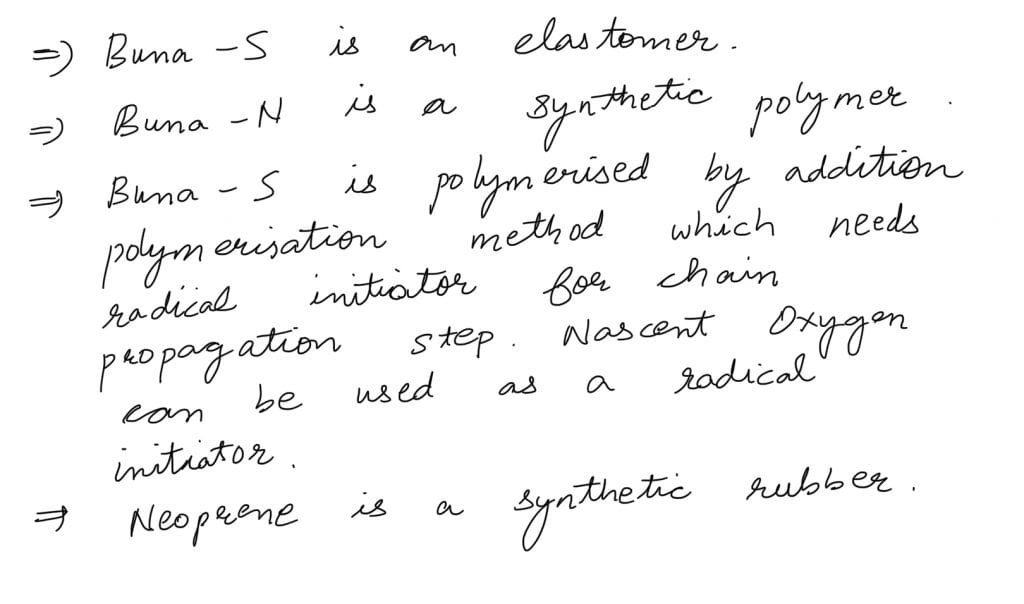 ⇒ Buna - S is an elastomer.
⇒ Buna - N is a synthetic polymer.
⇒ Buna - S is polymerised by addition
polymerisation method which needs
radical initiator for chain
propagation step. Nascent Oxygen
can be used as a radical
initiator.
⇒ Neoprene is a synthetic rubber.